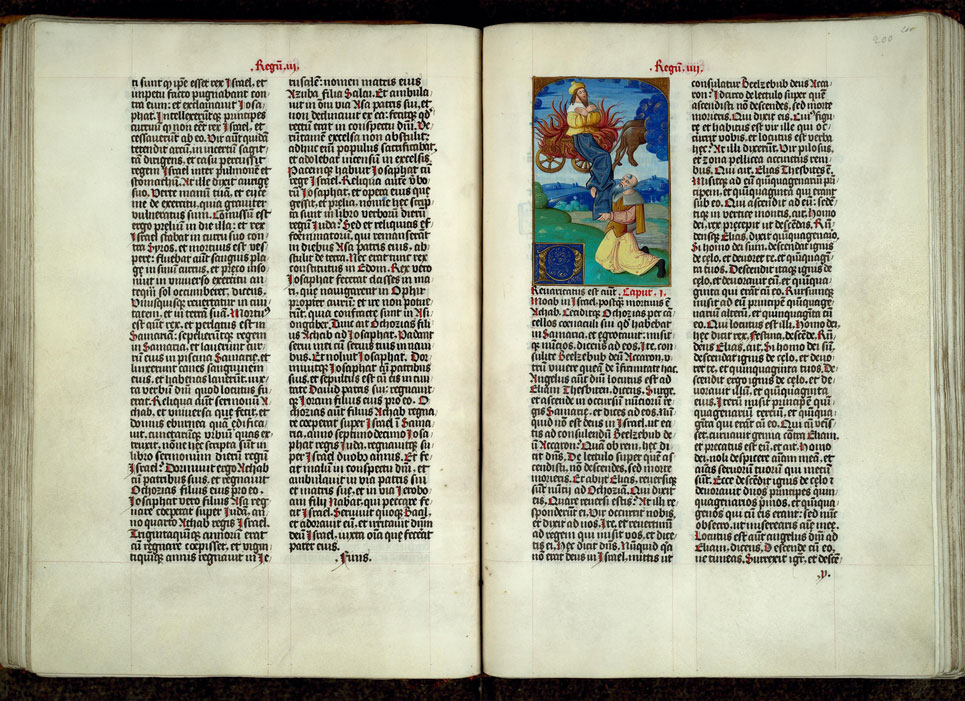 .Regū. iij
ti sunt qͥ ipse esset rex Israel, et
impetu facto pugnabant con
tra eum: et exclamauit Iosa
phat. Intellexerūtqꝫ principes
curruū qͥ non eēt rex Israel, et
cessauerūt ab eo. Vir autē quidā
tetendit arcū, in incertū sagit
tā dirigens, et casu percussit
regem Israel inter pulmonē et
stomachū. At ille dixit aurige
suo. Verte manū tuā, et eijce
me de exercitu, quia grauiter
vulneratus sum. Cōmissū est
ergo preliū in die illa: et rex
Israel stabat in curru suo con
tra Syros, et mortuus est ves
pere: fluebat autē sanguis pla
ge in sinū currus, et preco inso
nuit in vniuerso exercitu an
tequā sol occumberet, dicens.
Vnusquisqꝫ reuertatur in ciui
tatem, et in terrā suā. Mortuꝰ
est autē rex, et perlatus est in
Samariā: sepelierūtqꝫ regem
in Samaria, et lauerunt cur
rū eius in piscina Samarie, et
linxerunt canes sanguinem
eius, et habenas lauerūt, iux
ta verbū dn̄i quod locutus fu
erat. Reliqua autē sermonū A
chab, et vniuersa que fecit, et
domus eburnea quā edifica
uit, cunctarūqꝫ vrbiū quas ex
truxit, nōne hec scripta sūt in
libro sermonum dierū regū
Israel? Dormiuit ergo Achab
cū patribus suis, et regnauit
Ochozias filius eius pro eo.
Iosaphat vero filius Asa reg
nare ceperat super Iudā, an
no quarto Achab regis Israel.
Trigintaquinqꝫ annorū erat
cū regnare cepisset, et vigin
tiquinqꝫ annis regnauit in Ie
rusalē: nomen matris eius
Azuba filia Salai. Et ambula
uit in om̄i via Asa patris sui, et
non declinauit ex ea: fecitqꝫ qd̕
rectū erat in conspectu dn̄i. Ve
rūtamē excelsa non abstulit:
adhuc enī populus sacrificabat,
et adolebat incensū in excelsis.
Pacemqꝫ habuit Iosaphat cū
rege Israel. Reliqua autē v̄bo
rū Iosaphat, et opera eius que
gessit, et prelia, nōnne hec scrip
ta sunt in libro verborū dierū
regū Iuda? Sed et reliquias ef
feminatorū, qui remanserāt
in diebus Asa patris eius, ab
stulit de terra. Nec erat tunc rex
constitutus in Edom. Rex vero
Iosaphat fecerat classes in ma
ri, que nauigarent in Ophir
propter aurū: et ire non potue
rūt, quia confracte sunt in Asi
ongaber. Tūc ait Ochozias fili
us Achab ad Iosaphat. Vadant
serui mei cū seruis tuis in naui
bus. Et noluit Iosaphat. Dor
miuitqꝫ Iosaphat cū patribus
suis, et sepultus est cū eis in ciui
tate Dauid patris sui: regnauit
qꝫ Ioram filius eius pro eo. O
chozias autē filius Achab regna
re ceperat super Israel ī Sama
ria, anno septimodecimo Iosa
phat regis Iuda, regnauitqꝫ su
per Israel duobꝰ annis. Et fe
cit malū in conspectu dn̄i, et
ambulauit in via patris sui
et matris sue, et in via Ierobo
am filij Nabat, qui peccare fe
cit Israel. Seruiuit quoqꝫ Baal,
et adorauit eū, et irritauit dn̄m
deū Israel, iuxta oīa que fecerat
pater eius.
.Finis.
.Regū. iiij
200
Reuaricatus est autē. Caput. j.
Moab in Israel, postqꝫ mortuus ē
Achab. Ceciditqꝫ Ochozias per cā
cellos cenaculi sui qd̕ habebat
in Samaria, et egrotauit: misit
qꝫ nūcios, dicens ad eos. Ite, con
sulite Beelzebub deū Accaron, v
trū viuere queā de īfirmitate hac.
Angelus autē dn̄i locutus est ad
Eliam Thesbiten, dicens. Surge,
et ascende in occursū nūciorū re
gis Samarie, et dices ad eos. Nū
quid nō est deus in Israel, vt ea
tis ad consulendū Beelzebub de
ū Accaron? Quā ob rem, hec di
cit dn̄s. De lectulo super quē as
cendisti, nō descendes, sed morte
morieris. Et abijt Elias, reuersiqꝫ
sūt nūcij ad Ochoziā. Qui dixit
eis. Quare reuersi estis? At illi re
sponderūt ei. Vir occurrit nobis,
et dixit ad nos. Ite, et reuertimī
ad regem qui misit vos, et dice
tis ei. Hec dicit dn̄s. Nūquid qͣ
nō erat deus in Israel, mittis vt
consulatur Beelzebub deus Acca
ron? Idcirco de lectulo super quē
ascendisti nō descendes, sed morte
morieris. Qui dixit eis. Cuiꝰ figu
re et habitus est vir ille qui oc
currit vobis, et locutus est verba
hec? At illi dixerūt. Vir pilosus,
et zona pellicea accinctus reni
bus. Qui ait. Elias Thesbites ē.
Misitqꝫ ad eū quīquagenariū pri
cipem, et quīquaginta qui erant
sub eo. Qui ascendit ad eū: sedē
tiqꝫ in vertice montis, ait. Homo
dei, rex precepit vt descendas. Rn̄
densqꝫ Elias, dixit quīquagenario.
Si homo dei sum, descendat ignis
de celo, et deuoret te, et quīquagī
ta tuos. Descendit itaqꝫ ignis de
celo, et deuorauit eū, et quīqua
ginta qui erāt cū eo. Rursumqꝫ
misit ad eū principē quīquage
nariū alterū, et quīquaginta cū
eo. Qui locutus est illi. Homo dei,
hec dixit rex, Festina, descēde. Rn̄
dens Elias, ait. Si homo dei sū,
descendat ignis de celo, et deuo
ret te, et quīquaginta tuos. De
scendit ergo ignis de celo, et de
uorauit illū, et quīquaginta
eius. Iterū misit principē quī
quagenariū terciū, et quīqua
ginta qui erāt cū eo. Qui cū venis
set, curuauit genua cōtra Eliam,
et precatus est eū, et ait. Homo
dei, noli despicere aīam meā, et
aīas seruorū tuorū qui mecū
sunt. Ecce descēdit ignis de celo ⁊
deuorauit duos principes quin
quagenarios primos, et quīqua
genos qui cū eis erant: sed nūc
obsecro, vt miserearis aīe mee.
Locutus est autē angelus dn̄i ad
Eliam, dicens. Descende cū eo,
ne timeas. Surrexit igit̄, et desce